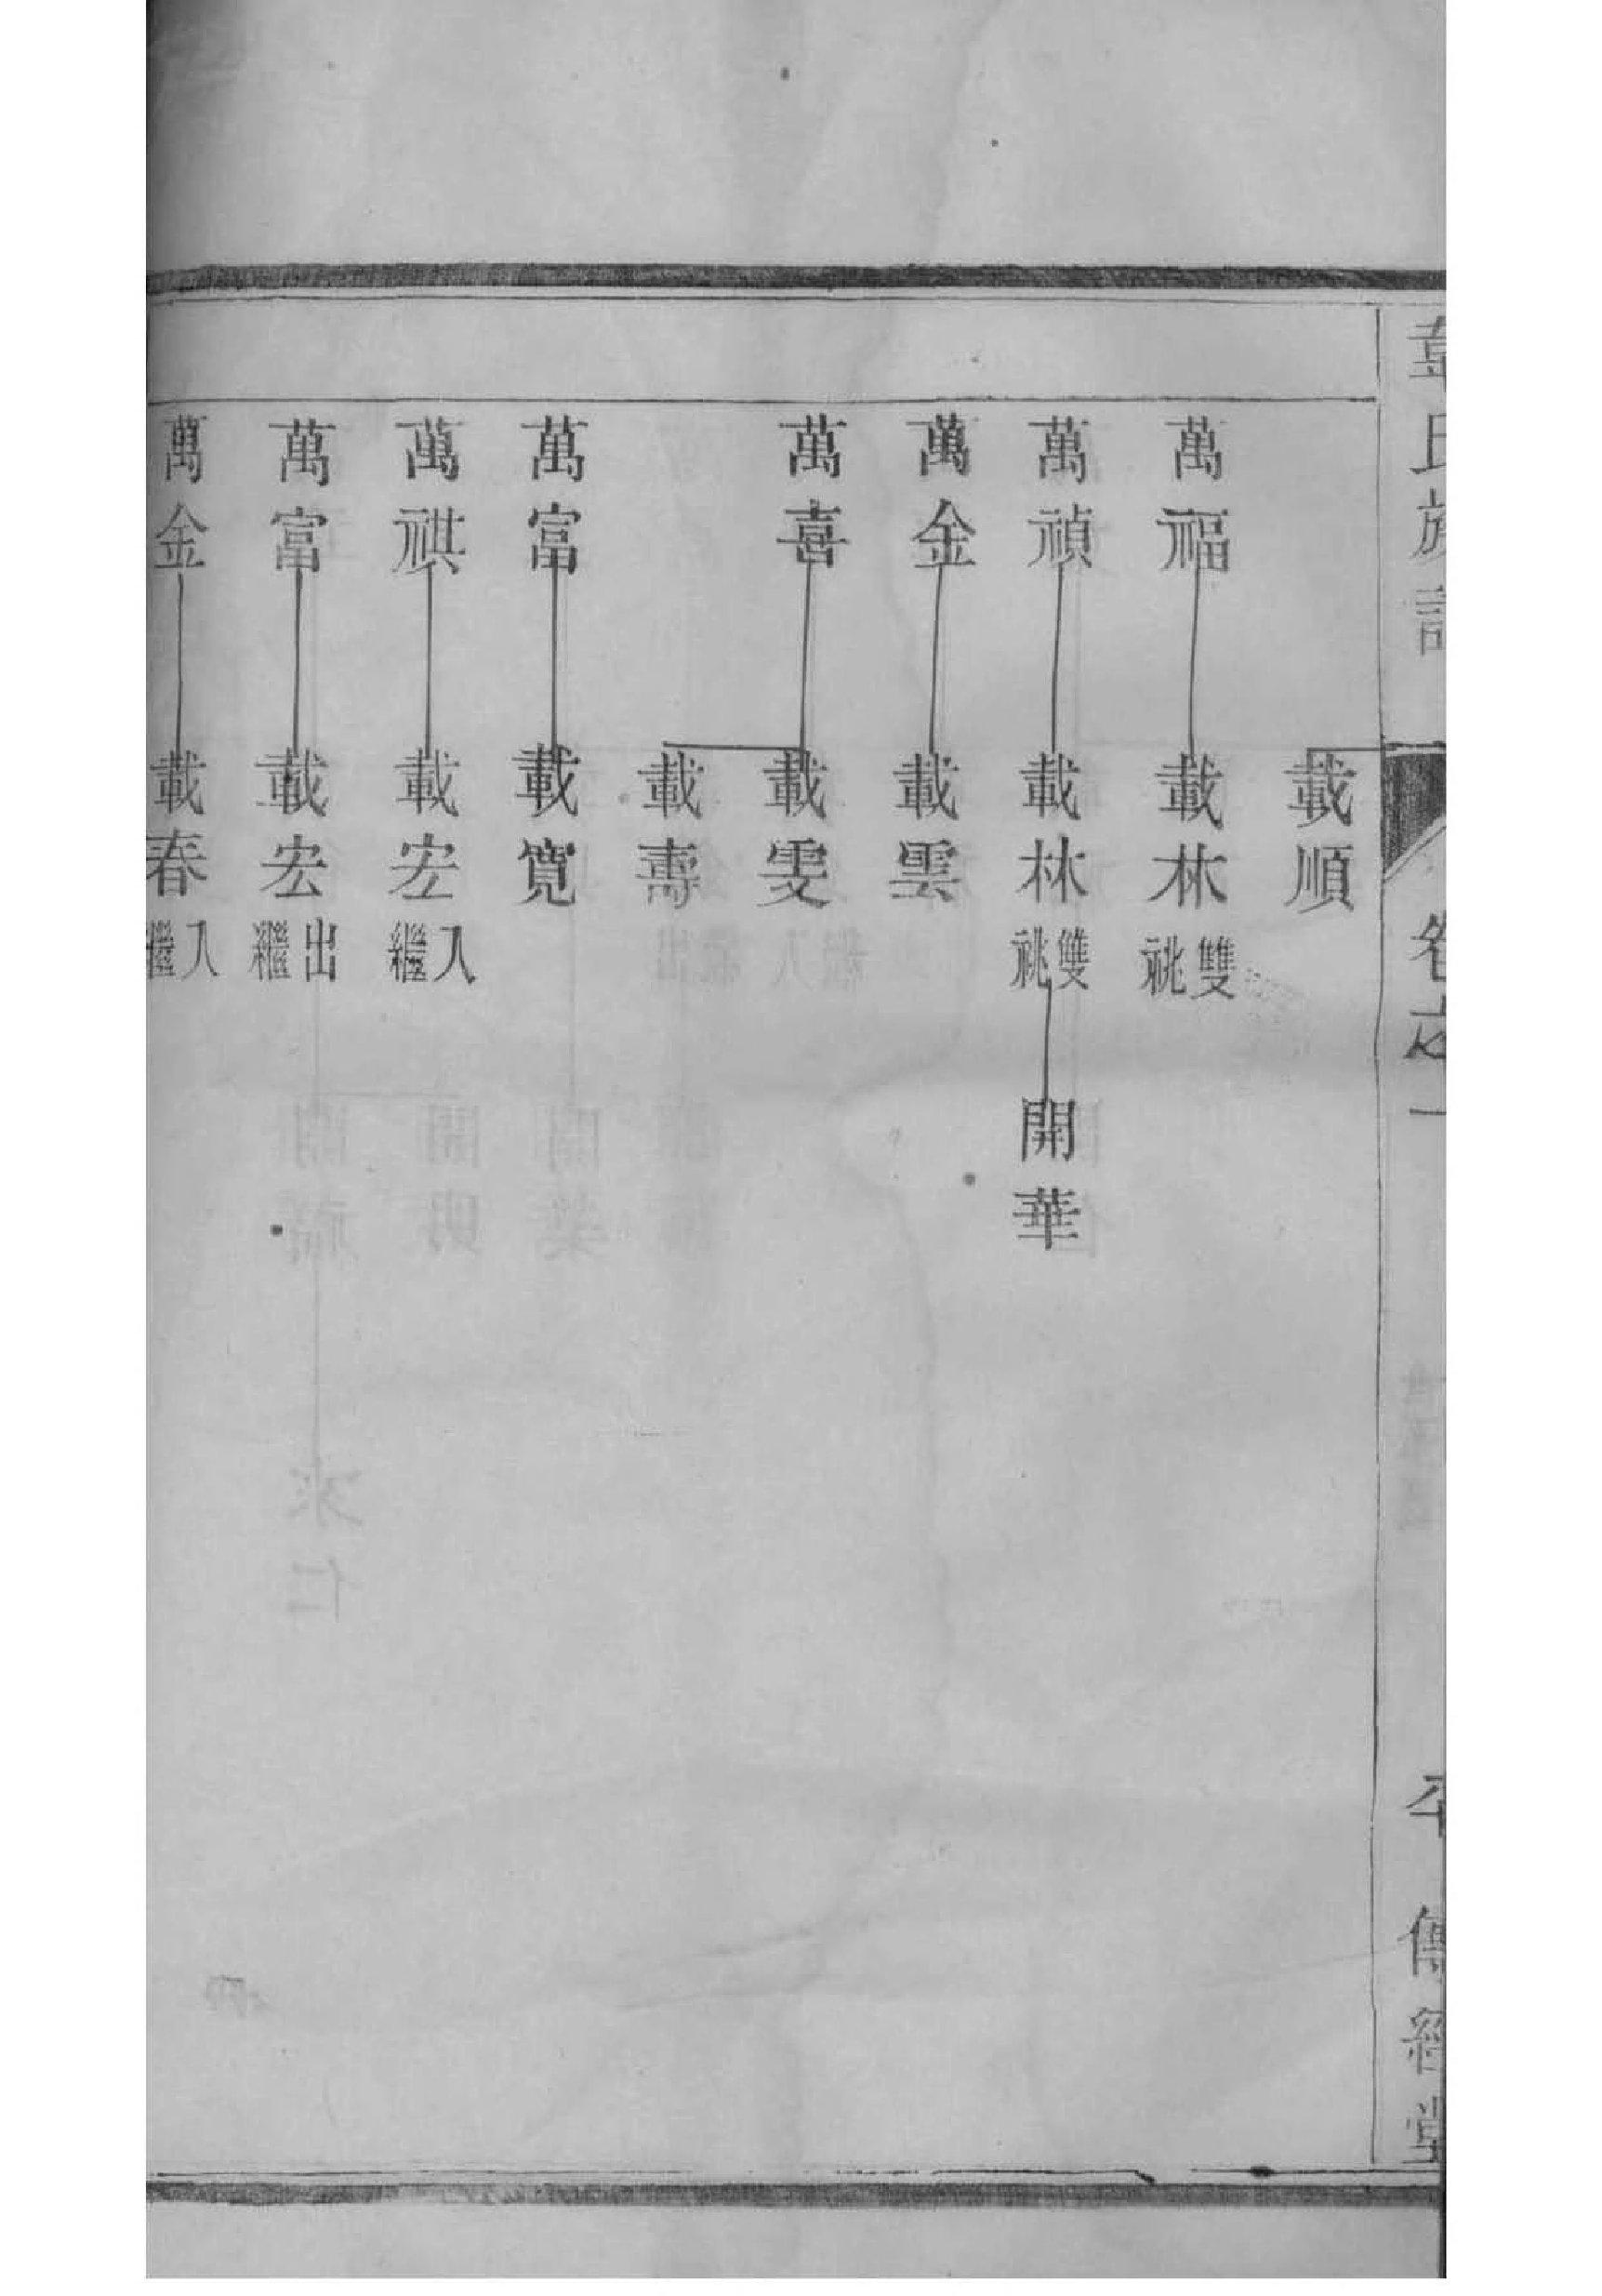 彭氏族譜 卷之一 傳經堂
載順
萬福 載林 雙祧
萬禎 載林 雙祧 開華
萬金 載雲
萬喜 載雯
載壽
萬富 載寬
萬祺 載宏 入繼
萬富 載宏 出繼
萬金 載春 入繼